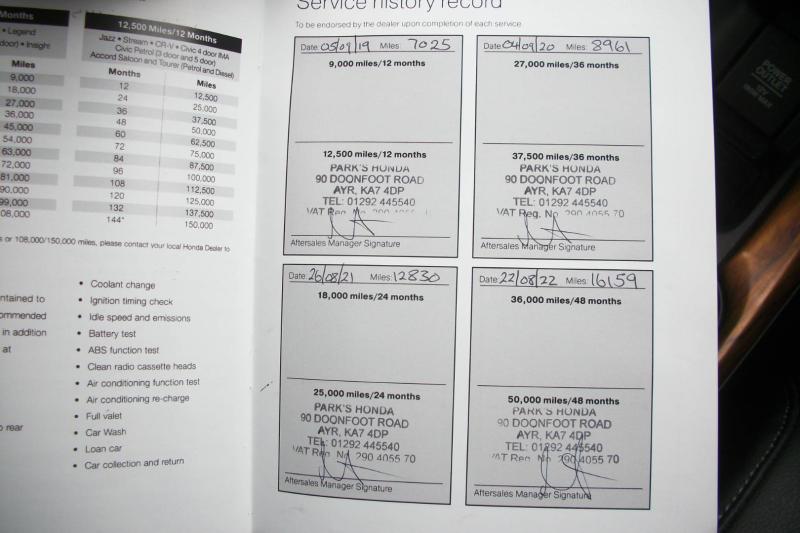 Months
• Legend
door) • Insight
Miles
9,000
18,000
27,000
36,000
45,000
54,000
63,000
72,000
81,000
90,000
99,000
08,000
12,500 Miles/12 Months
Jazz • Stream • CR-V • Civic 4 door IMA
Civic Petrol (3 door and 5 door)
Accord Saloon and Tourer (Petrol and Diesel)
Months Miles
12 12,500
24 25,000
36 37,500
48 50,000
60 62,500
72 75,000
84 87,500
96 100,000
108 112,500
120 125,000
132 137,500
144* 150,000
s or 108,000/150,000 miles, please contact your local Honda Dealer to
ntained to
ommended
in addition
at
o rear
• Coolant change
• Ignition timing check
• Idle speed and emissions
• Battery test
• ABS function test
• Clean radio cassette heads
• Air conditioning function test
• Air conditioning re-charge
• Full valet
• Car Wash
• Loan car
• Car collection and return
Service history record
To be endorsed by the dealer upon completion of each service
Date: 05/09/19 Miles: 7025
9,000 miles/12 months
12,500 miles/12 months
PARK'S HONDA
90 DOONFOOT ROAD
AYR, KA7 4DP
TEL: 01292 445540
VAT Reg. N
Aftersales Manager Signature
Date: 04/09/20 Miles: 8961
27,000 miles/36 months
37,500 miles/36 months
PARK'S HONDA
90 DOONFOOT ROAD
AYR, KA7 4DP
TEL: 01292 445540
VAT Reg. No 290 4055 70
Aftersales Manager Signature
Date: 26/08/21 Miles: 12830
18,000 miles/24 months
25,000 miles/24 months
PARK'S HONDA
90 DOONFOOT ROAD
AYR, KA7 4DP
TEL: 01292 445540
VAT Reg. No 290 4055 70
Aftersales Manager Signature
Date: 22/08/22 Miles: 16159
36,000 miles/48 months
50,000 miles/48 months
PARK'S HONDA
90 DOONFOOT ROAD
AYR, KA7 4DP
TEL: 01292 445540
VAT Reg. No 290 4055 70
Aftersales Manager Signature
POWER
OUTLET
12V